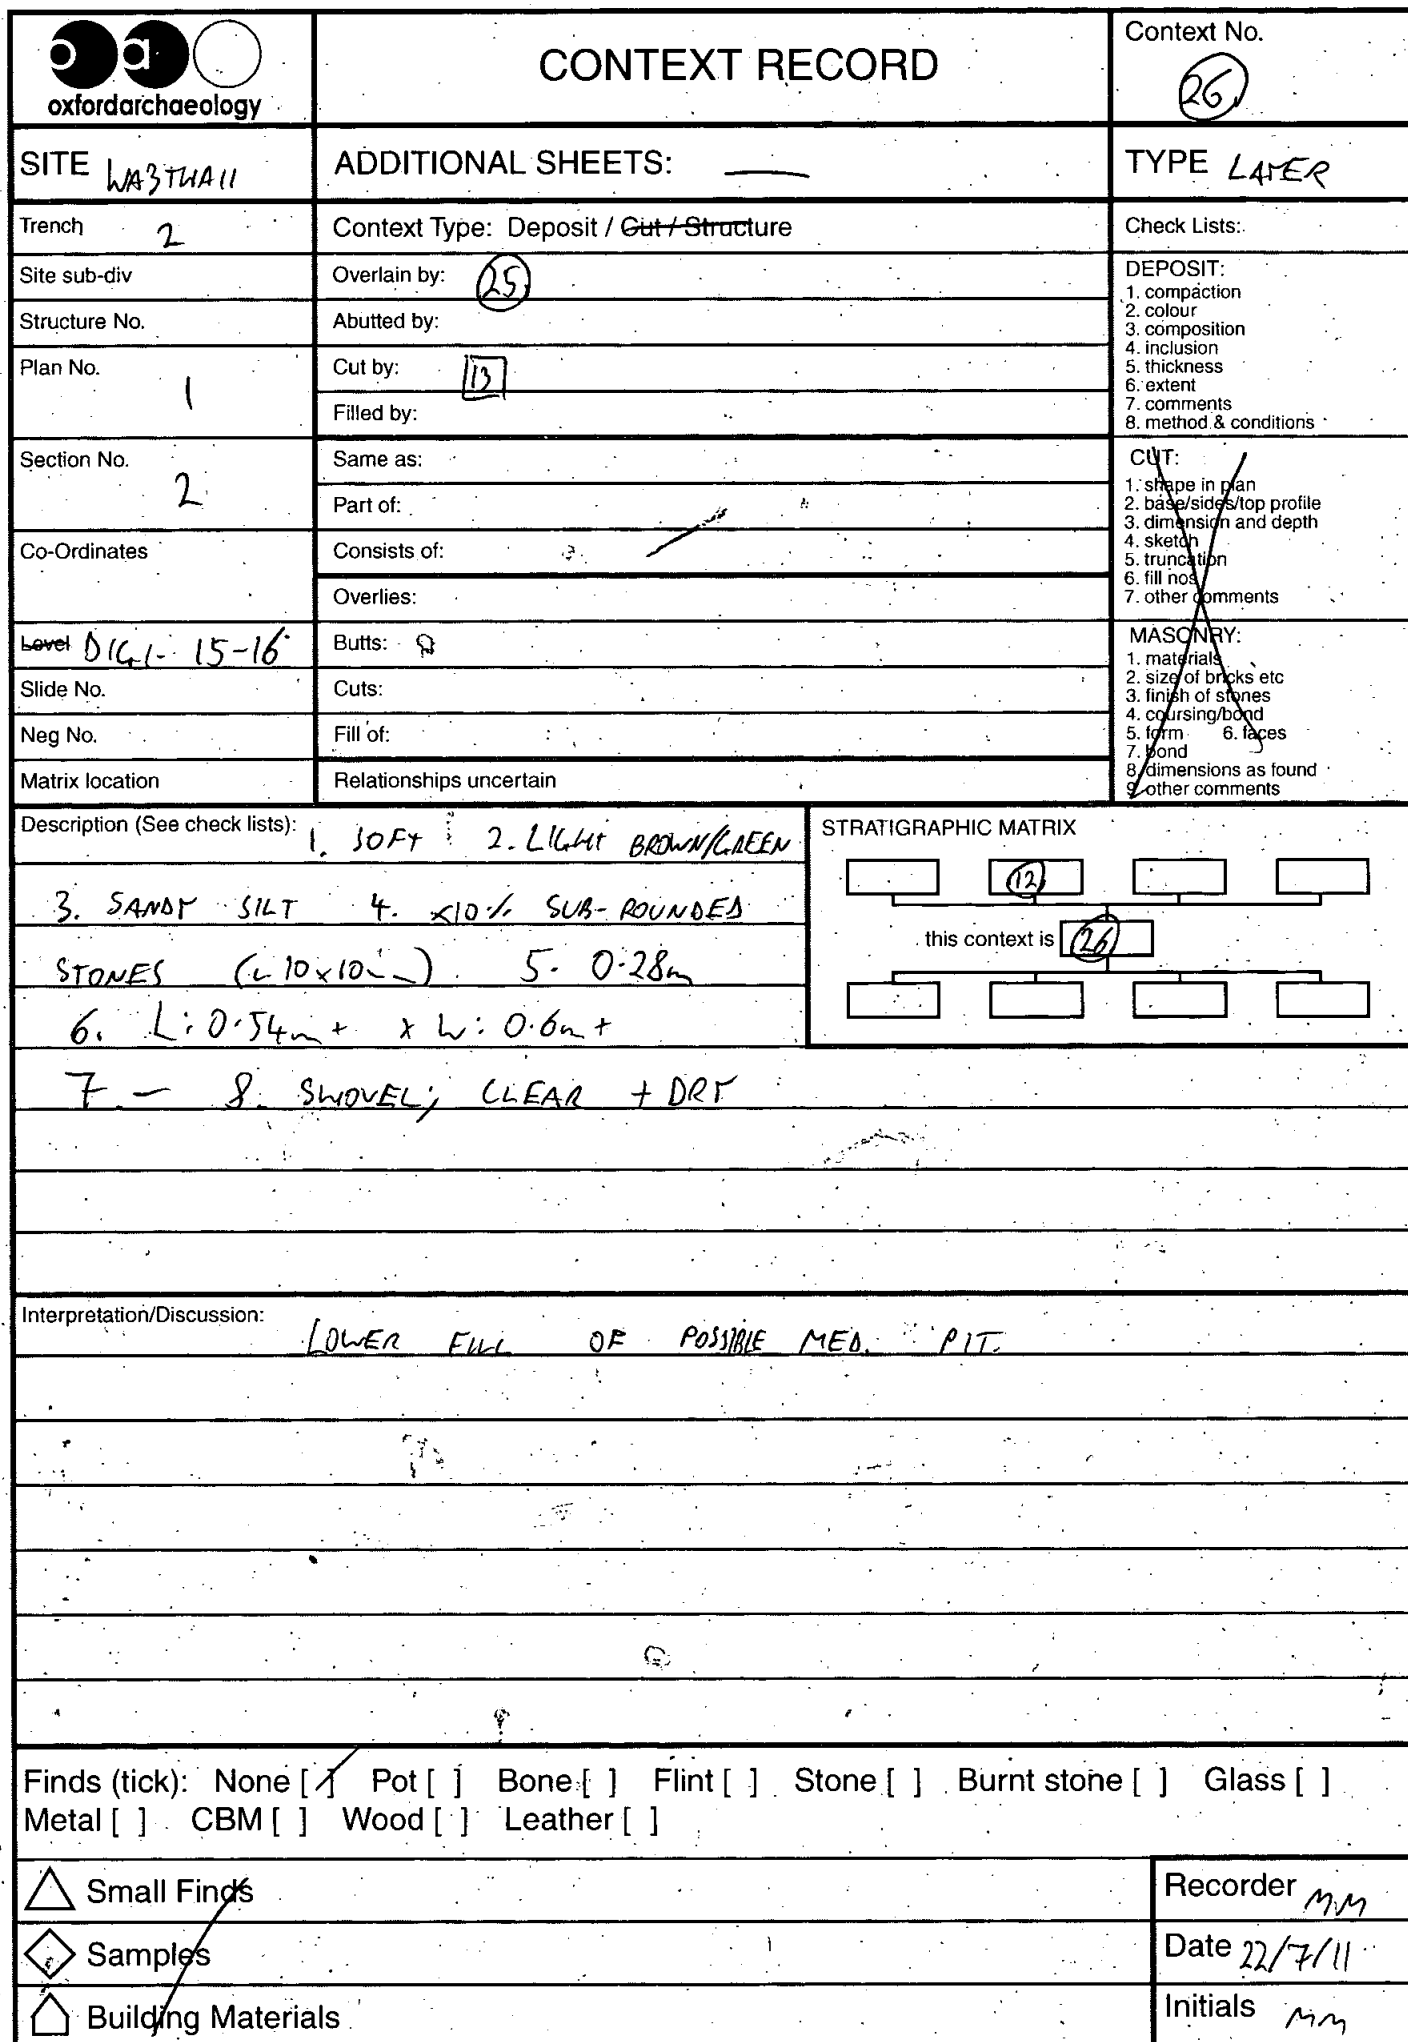 oao
oxfordarchaeology
CONTEXT RECORD
Context No.
26
SITE WA3THA11
ADDITIONAL SHEETS: —
TYPE LAYER
Trench 2
Context Type: Deposit / Cut / Structure
Check Lists:
Site sub-div
Overlain by: 25
Structure No.
Abutted by:
Plan No. 1
Cut by: 13
Filled by:
Section No. 2
Same as:
Part of:
Co-Ordinates
Consists of:
Overlies:
Level DIGI- 15-16
Butts:
Slide No.
Cuts:
Neg No.
Fill of:
Matrix location
Relationships uncertain
DEPOSIT:
1. compaction
2. colour
3. composition
4. inclusion
5. thickness
6. extent
7. comments
8. method & conditions
CUT:
1. shape in plan
2. base/sides/top profile
3. dimension and depth
4. sketch
5. truncation
6. fill nos
7. other comments
MASONRY:
1. materials
2. size of bricks etc
3. finish of stones
4. coursing/bond
5. form 6. faces
7. bond
8. dimensions as found
9. other comments
Description (See check lists): 1. SOFT 2. LIGHT BROWN/GREEN
3. SANDY SILT 4. <10% SUB-ROUNDED
STONES (< 10x10mm). 5. 0.28m
6. L: 0.54m + x W: 0.6m +
7. — 8. SHOVEL; CLEAR + DRY
STRATIGRAPHIC MATRIX
12
this context is 26
Interpretation/Discussion:
LOWER FILL OF POSSIBLE MED. PIT.
Finds (tick): None [/] Pot [ ] Bone [ ] Flint [ ] Stone [ ] Burnt stone [ ] Glass [ ]
Metal [ ] CBM [ ] Wood [ ] Leather [ ]
Small Finds
Samples
Building Materials
Recorder MM
Date 22/7/11
Initials MM